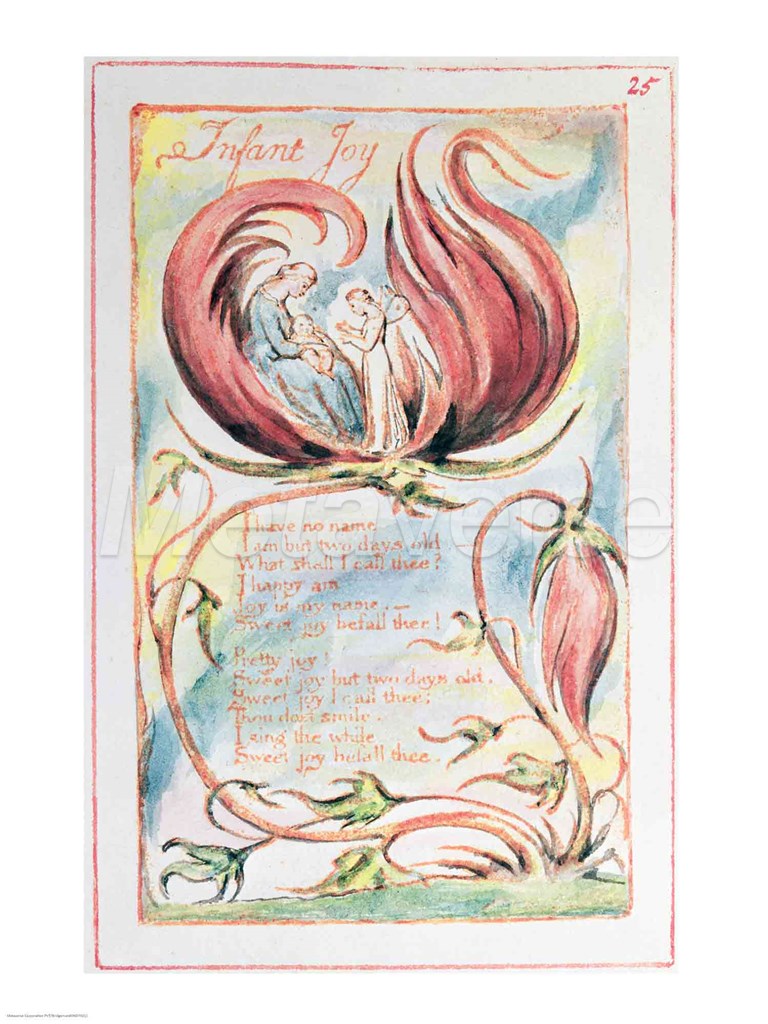 25
Infant Joy
I have no name
I am but two days old
What shall I call thee?
I happy am
Joy is my name. —
Sweet joy befall thee!
Pretty joy!
Sweet joy but two days old.
Sweet joy I call thee;
Thou dost smile.
I sing the while
Sweet joy befall thee.
Metaverse